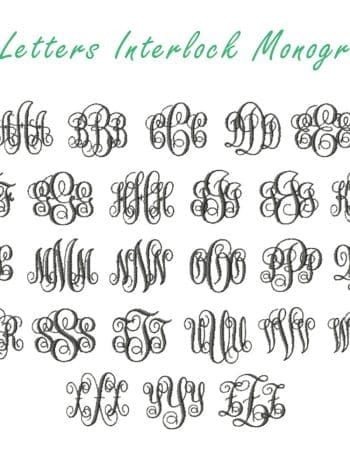 Letters Interlock Monogr
AAA BBB CCC DDD EEE
F GGG HHH III JJJ K
MMM NNN OOO PPP
R SSS TTT UUU VVV W
XXX YYY ZZZ